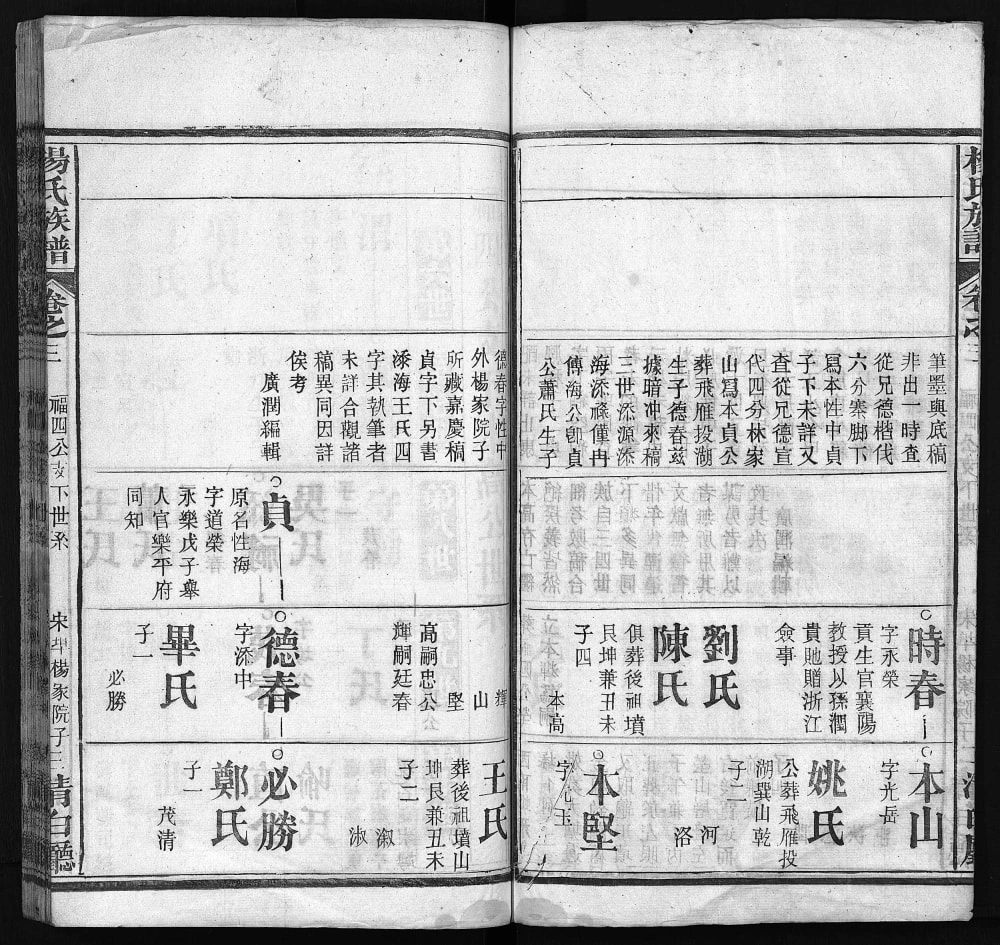 筆墨與底稿
非出一時查
從兄德楷伐
六分寨脚下
冩本性中貞
子下未詳又
查從兄德宣
代四分林家
山爲本貞公
葬飛雁投湖
生子德春茲
據暗冲來稿
三世添源添
海添祿僅冉
傳海公卽貞
公蕭氏生子
時春
字永榮
貢生官襄陽
教授以孫潤
貴貤贈浙江
僉事
劉氏
陳氏
俱葬後祖墳
艮坤兼丑未
子四
本高
本山
字光岳
姚氏
公葬飛雁投
湖巽山乾
子二
河
洛
本堅
字心玉
楊氏族譜
卷之三
福四公支下世系
宋坪楊家院子三
清白廳
德春字性中
外楊家院子
所藏嘉慶稿
貞字下另書
添海王氏四
字其執筆者
未詳合觀諸
稿異同因詳
俟考
廣潤編輯
貞
原名性海
字道榮
永樂戊子舉
人官樂平府
同知
輝
山
堅
高嗣公忠
輝嗣廷春
德春
字添中
畢氏
子一
必勝
王氏
葬後祖墳山
坤艮兼丑未
子二
淑
必勝
鄭氏
子一
茂清